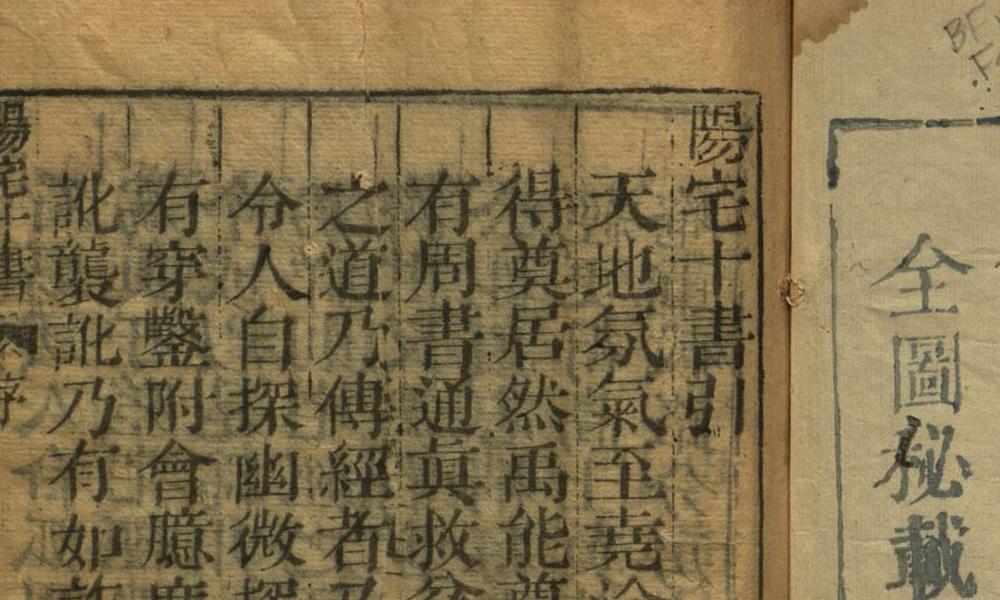 全圖秘載
陽宅十書引
天地氛氣至堯
得奠居然禹能
有周書通眞救
之道乃傳經者
令人自探幽微
有穿鑿附會臆
訛襲訛乃有如
陽宅十書
序